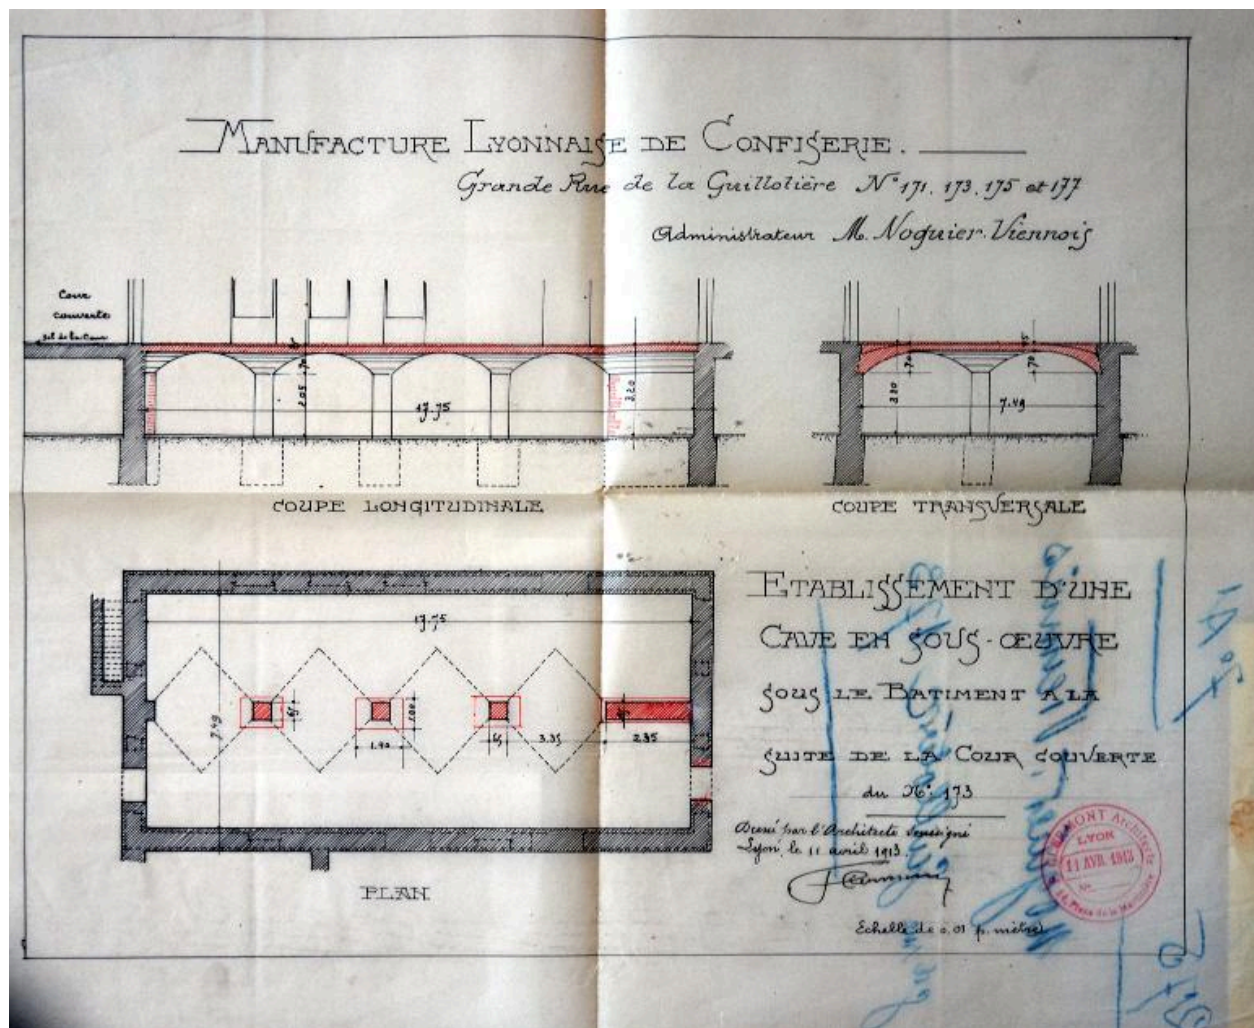 MANUFACTURE LYONNAISE DE CONFISERIE.
Grande Rue de la Guillotière Nº 171, 173, 175 et 177
Administrateur M. Noguier-Viennois
Cour
couverte
sol de la Cour
70
2.05
17.75
3.20
70
3.20
70
7.49
COUPE LONGITUDINALE
COUPE TRANSVERSALE
17.75
7.49
1.00
1.90
3.35
2.85
PLAN
ETABLISSEMENT D'UNE
CAVE EN SOUS-ŒUVRE
SOUS LE BATIMENT A LA
SUITE DE LA COUR COUVERTE
du Nº 173
Dressé par l'Architecte soussigné
Lyon, le 11 avril 1913.
Echelle de 0.01 p. mètre
Architecte
LYON
11 AVR. 1913
Nº
Place de la